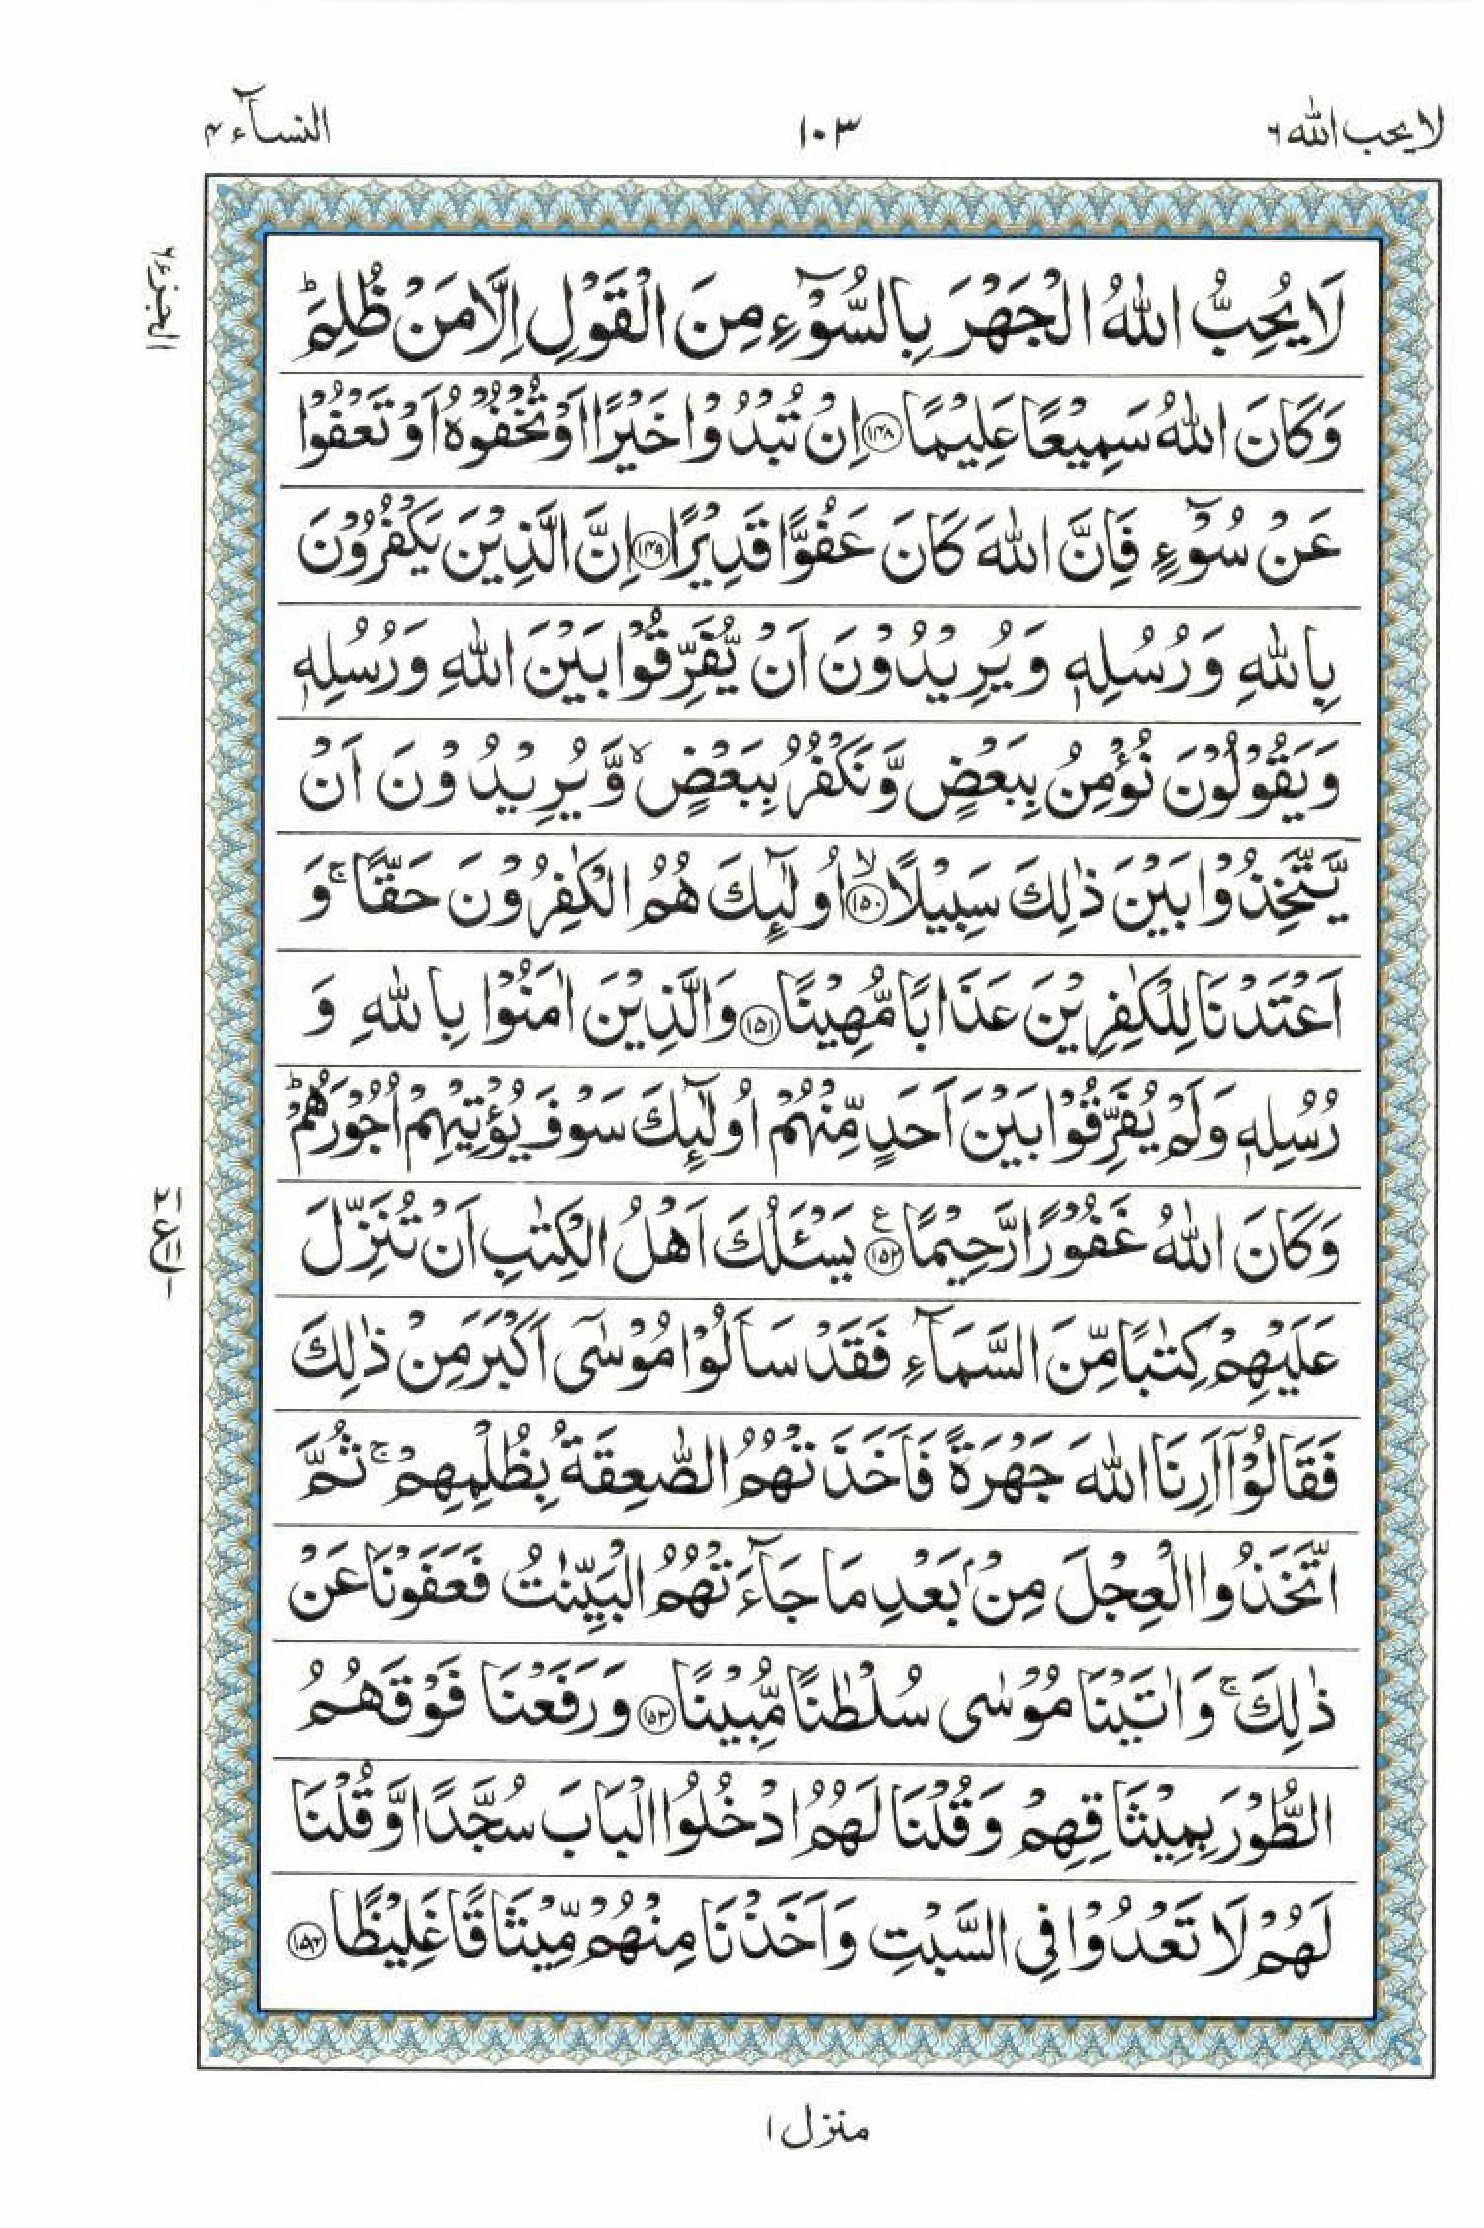 لا يحب الله ٦
١٠٣
النسآء ٤
الجزء ٦
لَا يُحِبُّ اللّٰهُ الْجَهْرَ بِالسُّوْٓءِ مِنَ الْقَوْلِ اِلَّا مَنْ ظُلِمَ ؕ
وَكَانَ اللّٰهُ سَمِيْعًا عَلِيْمًا ۝١٤٨ اِنْ تُبْدُوْا خَيْرًا اَوْ تُخْفُوْهُ اَوْ تَعْفُوْا
عَنْ سُوْٓءٍ فَاِنَّ اللّٰهَ كَانَ عَفُوًّا قَدِيْرًا ۝١٤٩ اِنَّ الَّذِيْنَ يَكْفُرُوْنَ
بِاللّٰهِ وَرُسُلِهٖ وَيُرِيْدُوْنَ اَنْ يُّفَرِّقُوْا بَيْنَ اللّٰهِ وَرُسُلِهٖ
وَيَقُوْلُوْنَ نُؤْمِنُ بِبَعْضٍ وَّنَكْفُرُ بِبَعْضٍ ۙ وَّيُرِيْدُوْنَ اَنْ
يَّتَّخِذُوْا بَيْنَ ذٰلِكَ سَبِيْلًا ۙ۝١٥٠ اُولٰٓئِكَ هُمُ الْكٰفِرُوْنَ حَقًّا ۚ وَ
اَعْتَدْنَا لِلْكٰفِرِيْنَ عَذَابًا مُّهِيْنًا ۝١٥١ وَالَّذِيْنَ اٰمَنُوْا بِاللّٰهِ وَ
رُسُلِهٖ وَلَمْ يُفَرِّقُوْا بَيْنَ اَحَدٍ مِّنْهُمْ اُولٰٓئِكَ سَوْفَ يُؤْتِيْهِمْ اُجُوْرَهُمْ ؕ
وَكَانَ اللّٰهُ غَفُوْرًا رَّحِيْمًا ۝١٥٢ ع يَسْـَٔلُكَ اَهْلُ الْكِتٰبِ اَنْ تُنَزِّلَ
عَلَيْهِمْ كِتٰبًا مِّنَ السَّمَآءِ فَقَدْ سَاَلُوْا مُوْسٰٓى اَكْبَرَ مِنْ ذٰلِكَ
فَقَالُوْٓا اَرِنَا اللّٰهَ جَهْرَةً فَاَخَذَتْهُمُ الصّٰعِقَةُ بِظُلْمِهِمْ ۚ ثُمَّ
اتَّخَذُوا الْعِجْلَ مِنْۢ بَعْدِ مَا جَآءَتْهُمُ الْبَيِّنٰتُ فَعَفَوْنَا عَنْ
ذٰلِكَ ۚ وَاٰتَيْنَا مُوْسٰى سُلْطٰنًا مُّبِيْنًا ۝١٥٣ وَرَفَعْنَا فَوْقَهُمُ
الطُّوْرَ بِمِيْثَاقِهِمْ وَقُلْنَا لَهُمُ ادْخُلُوا الْبَابَ سُجَّدًا وَّقُلْنَا
لَهُمْ لَا تَعْدُوْا فِى السَّبْتِ وَاَخَذْنَا مِنْهُمْ مِّيْثَاقًا غَلِيْظًا ۝١٥٤
منزل ١